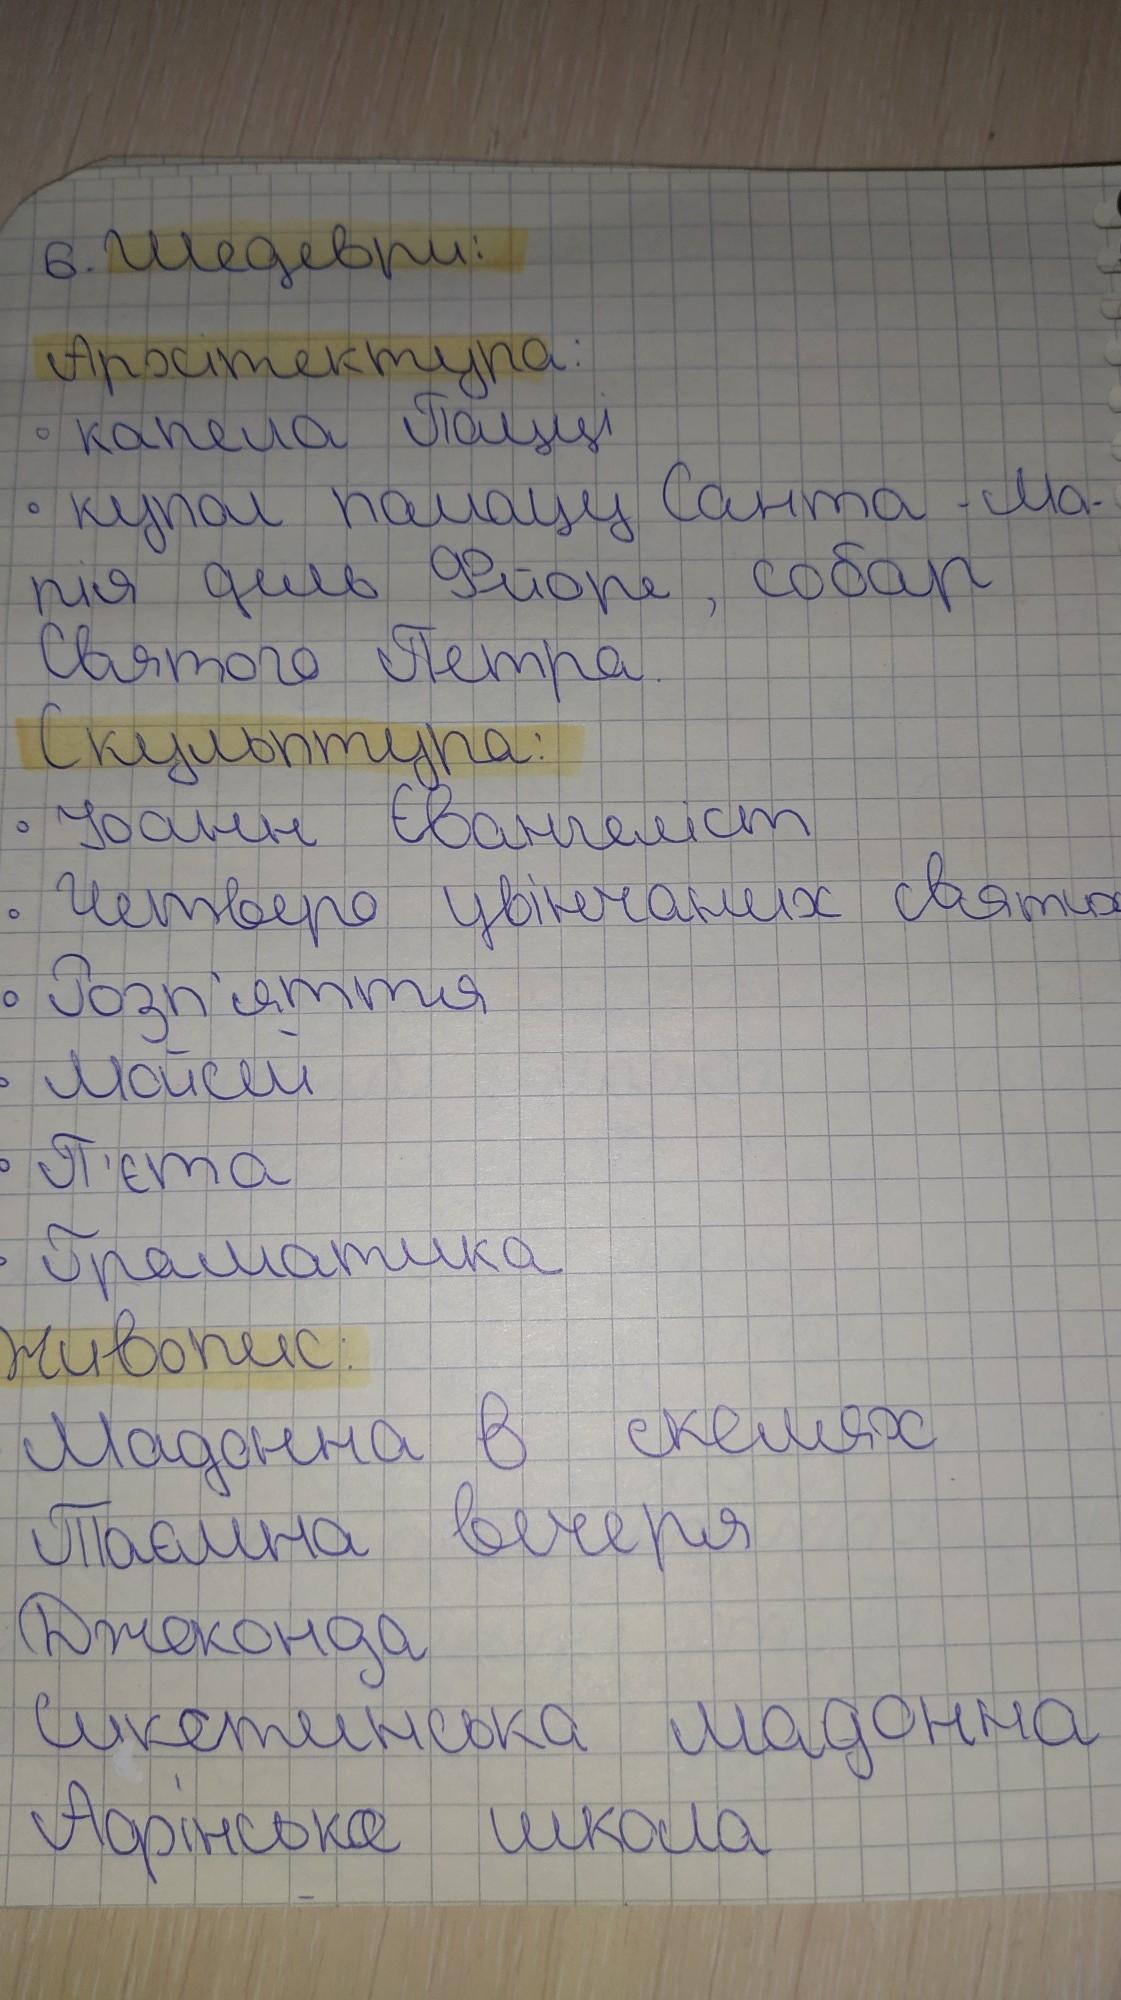 6. Шедеври:
Архітектура:
• капела Пацці
• купол палацу Санта - Ма-
рія дель Фйоре, собар
Святого Петра.
Скульптура:
• Іоанн Євангеліст
• Четверо увінчаних святих
• Розп'яття
• Мойсей
• П'єта
• Граматика
Живопис:
Мадонна в скелях
Таємна вечеря
Джоконда
Сикстинська мадонна
школа